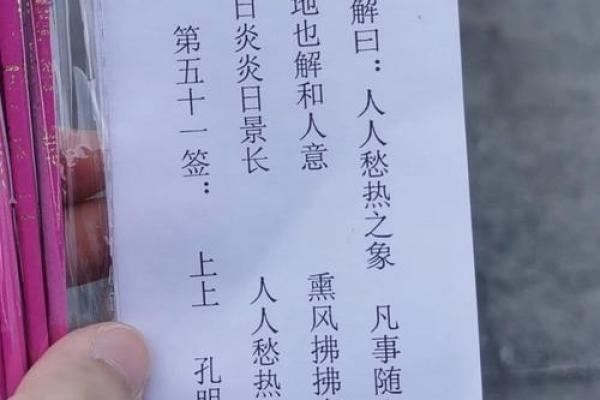 第五十一签： 上上 孔明
日炎炎日景长 人人愁热
地也解和人意 熏风拂拂
解曰：人人愁热之象 凡事随